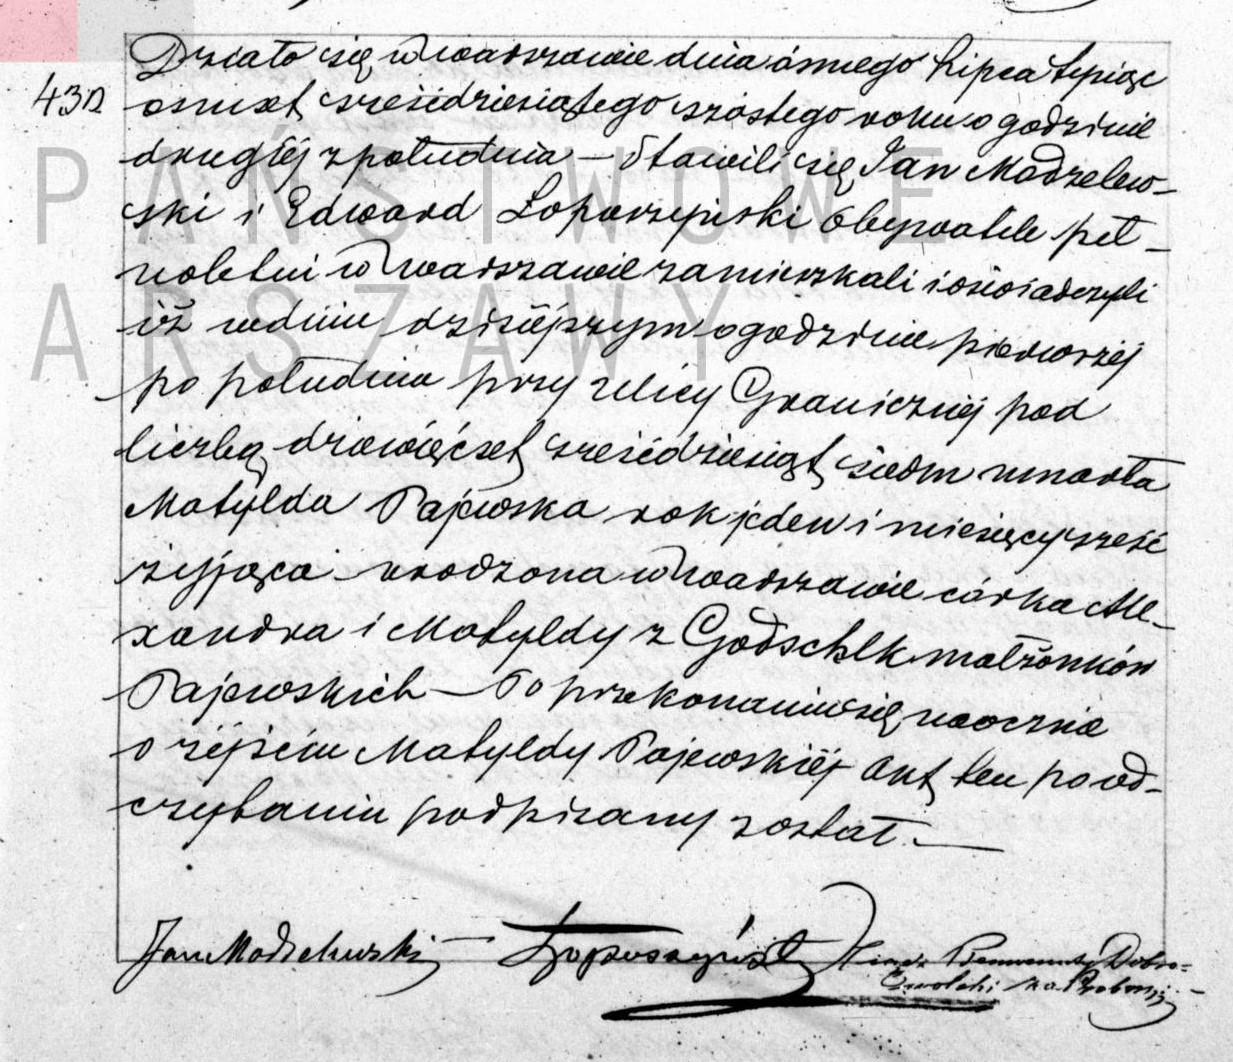 432
Działo się w Warszawie dnia ósmego Lipca tysiąc
osmset sześćdziesiątego szóstego roku o godzinie
drugiéj z południa – Stawili się Jan Modzelew-
ski i Edward Łopuszyński Obywatele peł-
noletni w Warszawie zamieszkali i oświadczyli
iż w dniu dzisiéjszym o godzinie pierwszéj
po południu przy ulicy Granicznéj pod
liczbą dziewięćset sześćdziesiąt siedm umarła
Matylda Pajewska rok jeden i miesięcy sześć
żyjąca – urodzona w Warszawie córka Ale-
xandra i Matyldy z Godschlk małżonków
Pajewskich – Po przekonaniu się naocznie
o zejściu Matyldy Pajewskiéj Akt ten po od-
czytaniu podpisany został. –
Jan Modzelewski – Łopuszyński Xiądz Benwenuty Dobro-
wolski za Proboszcza
PAŃSTWOWE
ARSZAWY